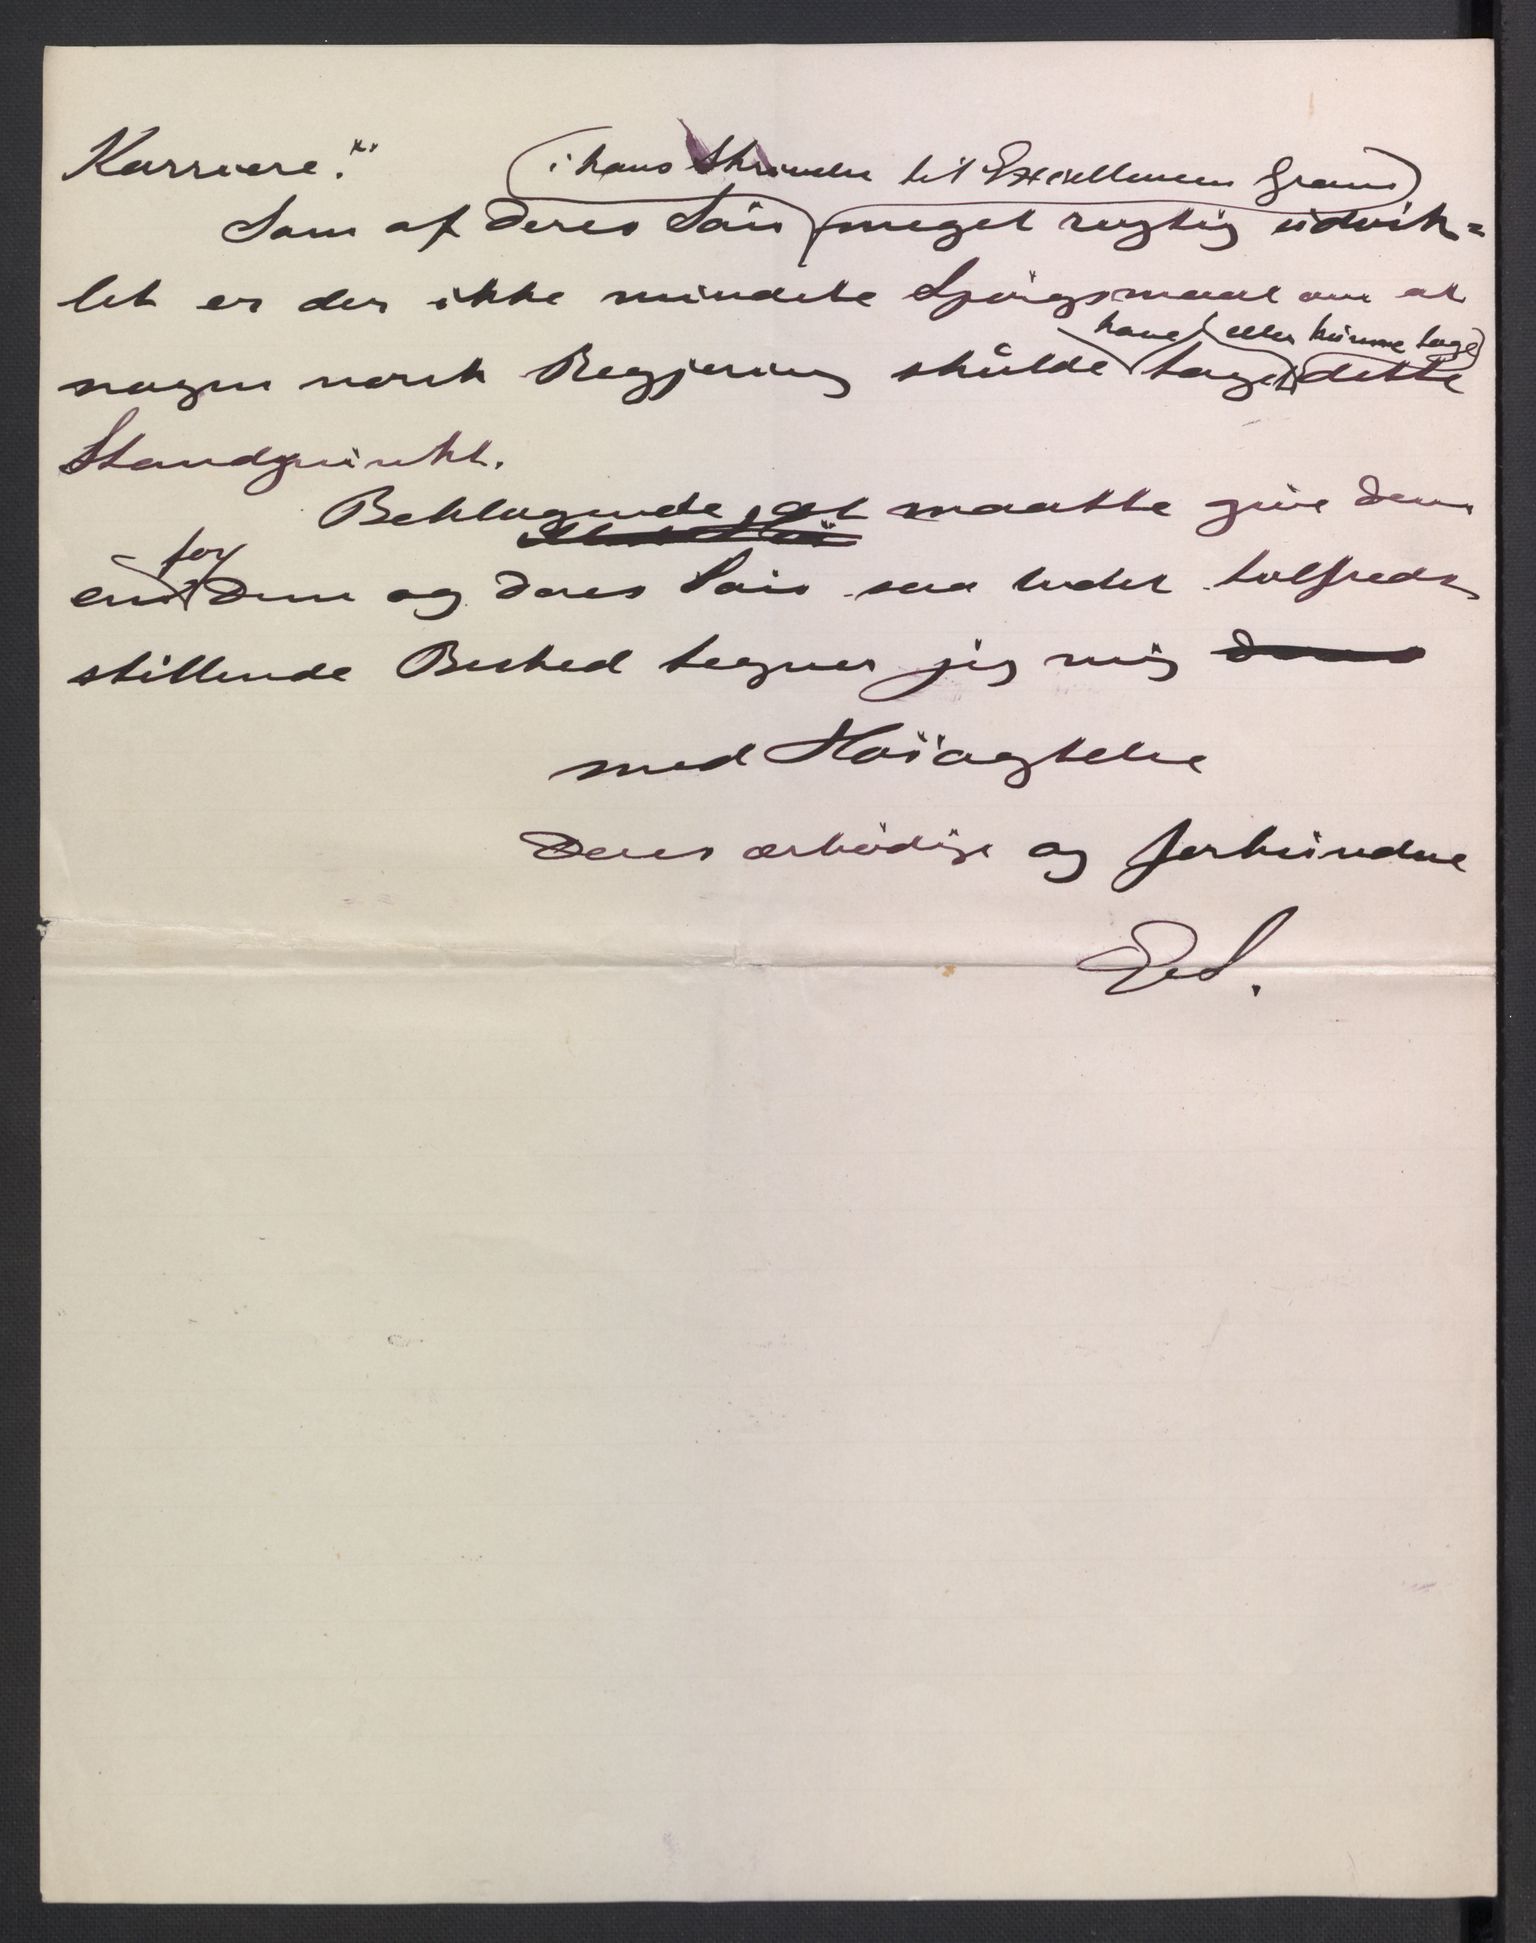 Karriere."
i hans Skrivelse til Excellencen Gram
Som af Deres Søn meget rigtig udvik-
let er der ikke mindste Spörgsmaal om at
have eller kunne tage
nogen norsk Regjering skulde taget dette
Standpunkt.
Beklagende at maatte give Dem
for
en Dem og Deres Søn saa lidet tilfreds
stillende Besked tegner jeg mig
med Höiagtelse
Deres ærbödige og forbundne